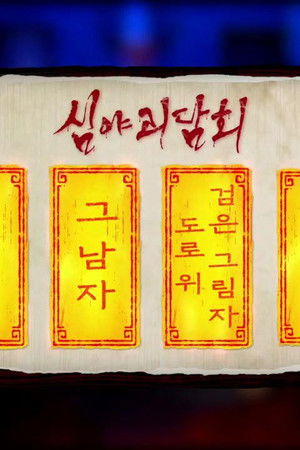 심야괴담회
그남자
도로위
검은그림자